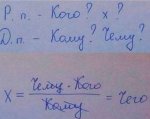 Р. п. - Кого? х?
Д. п. - Кому? Чему?
X = Чему · Кого / Кому = Чего